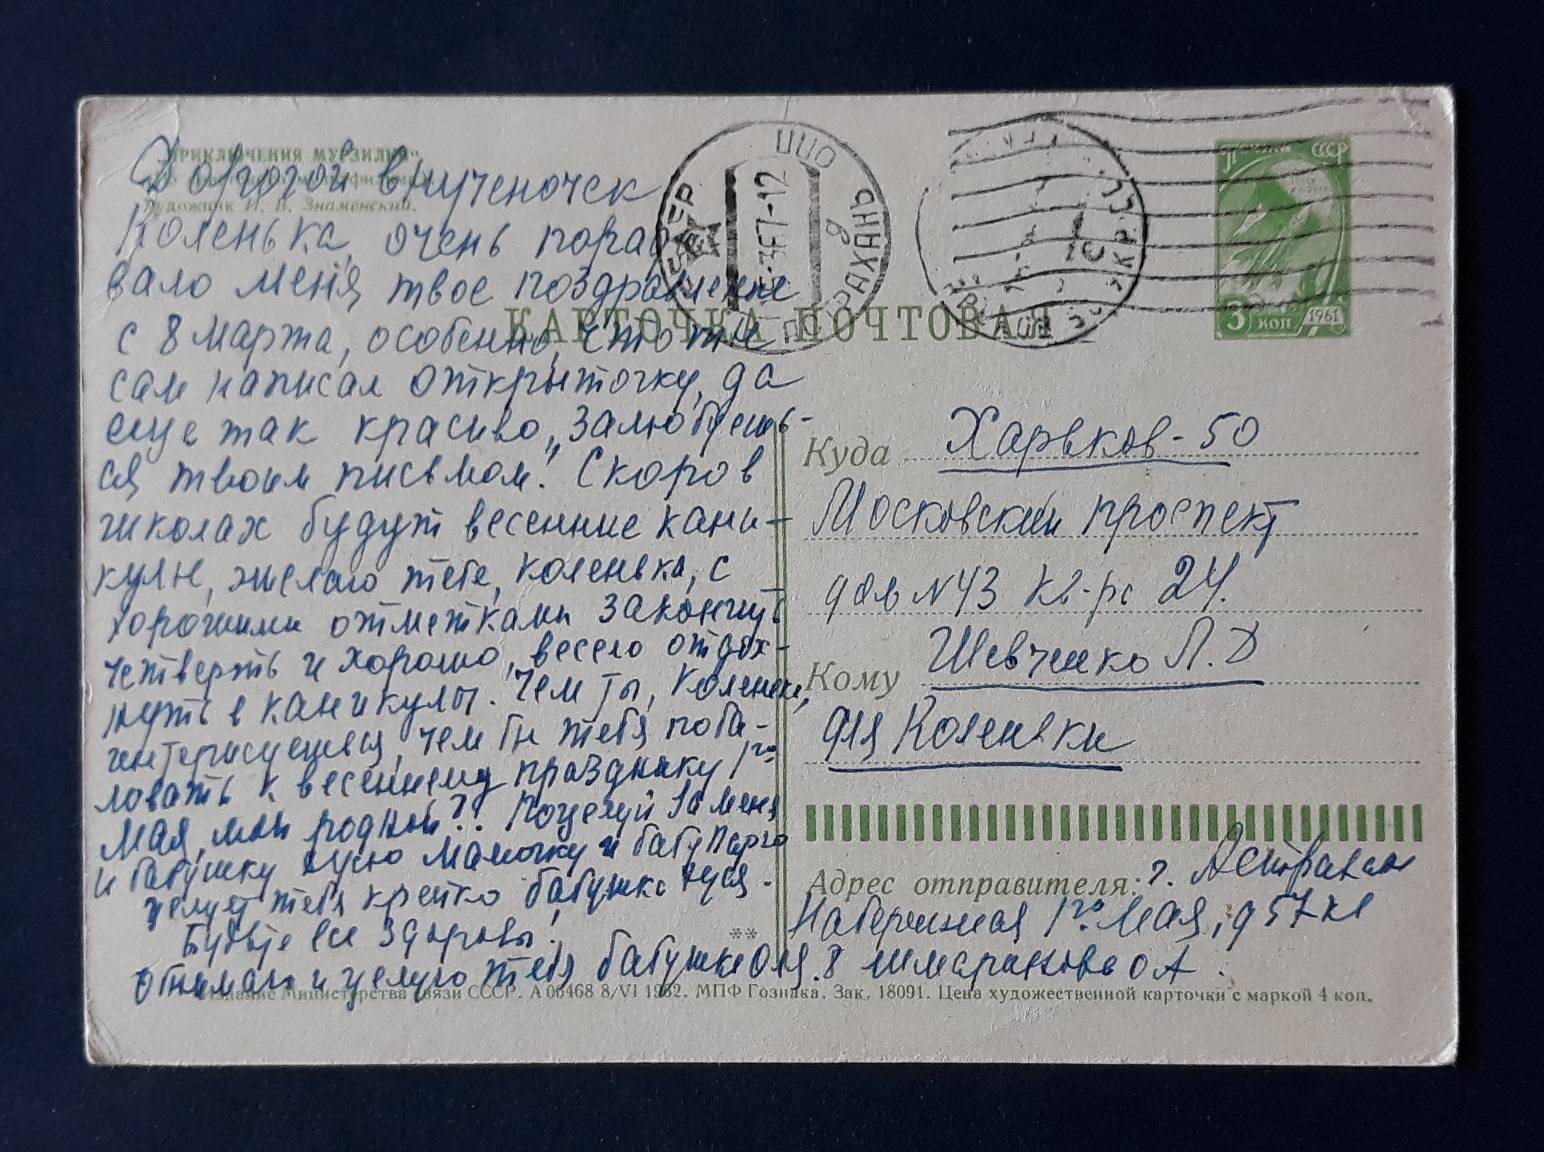 "ПРИКЛЮЧЕНИЯ МУРЗИЛКИ"
Художник И. В. Знаменский.
Дорогой внученочек
Коленька, очень порадо
вало меня твое поздравление
с 8 марта, особенно, что ты
сам написал открыточку, да
еще так красиво, "залюбуешь-
ся твоим письмом"! Скоро в
школах будут весенние кани-
кулы, желаю тебе, Коленька, с
хорошими отметками закончить
четверть и хорошо, весело отдох-
нуть в каникулы. Чем ты, Коленька,
интересуешься, чем бы тебя поба-
ловать к весеннему празднику 1го
Мая, мой родной?! Поцелуй за меня
и бабушку Дусю мамочку и бабу
целует тебя крепко бабушка Дуся.
Будьте все здоровы!
Обнимаю и целую тебя бабушка Оля.
КАРТОЧКА ПОЧТОВАЯ
ПОЧТА СССР
3 КОП 1961
Куда Харьков-50
Московский проспект
дом N 43 кв-ра 24.
Кому Шевченко Л. Д
для Коленьки
Адрес отправителя: г. Астрахань
Набережная 1го Мая, д 57 кв
8 О А.
**
Издание Министерства связи СССР. А 06468 8/VI 1962. МПФ Гознака. Зак. 18091. Цена художественной карточки с маркой 4 коп.